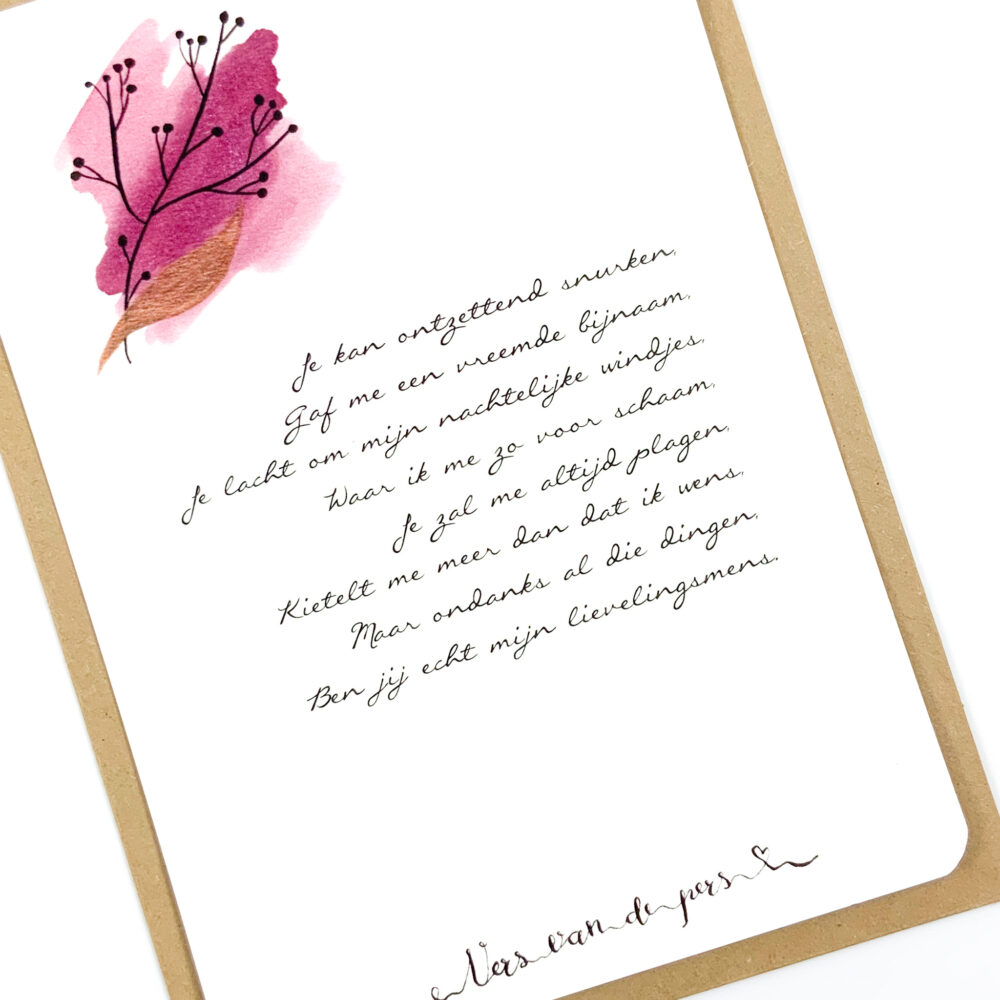 Je kan ontzettend snurken,
Gaf me een vreemde bijnaam,
Je lacht om mijn nachtelijke windjes,
Waar ik me zo voor schaam,
Je zal me altijd plagen,
Kietelt me meer dan dat ik wens,
Maar ondanks al die dingen,
Ben jij echt mijn lievelingsmens.
Vers van de pers